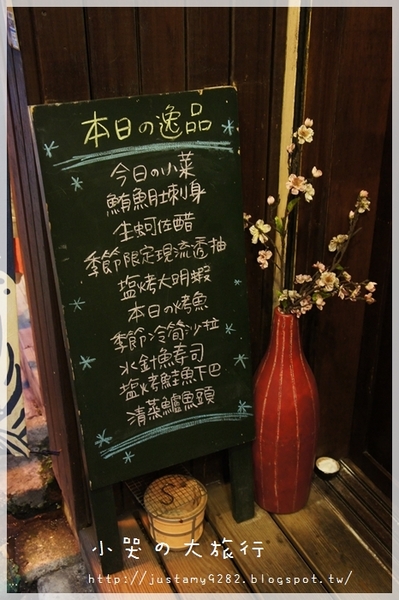 本日の逸品
今日の小菜
鮪魚肚刺身
生蚵佐醋
季節限定現流透抽
塩烤大明蝦
本日の烤魚
季節冷筍沙拉
水針魚寿司
塩烤鮭魚下巴
清蒸鱸魚頭
小哭の大旅行
http://justamy9282.blogspot.tw/